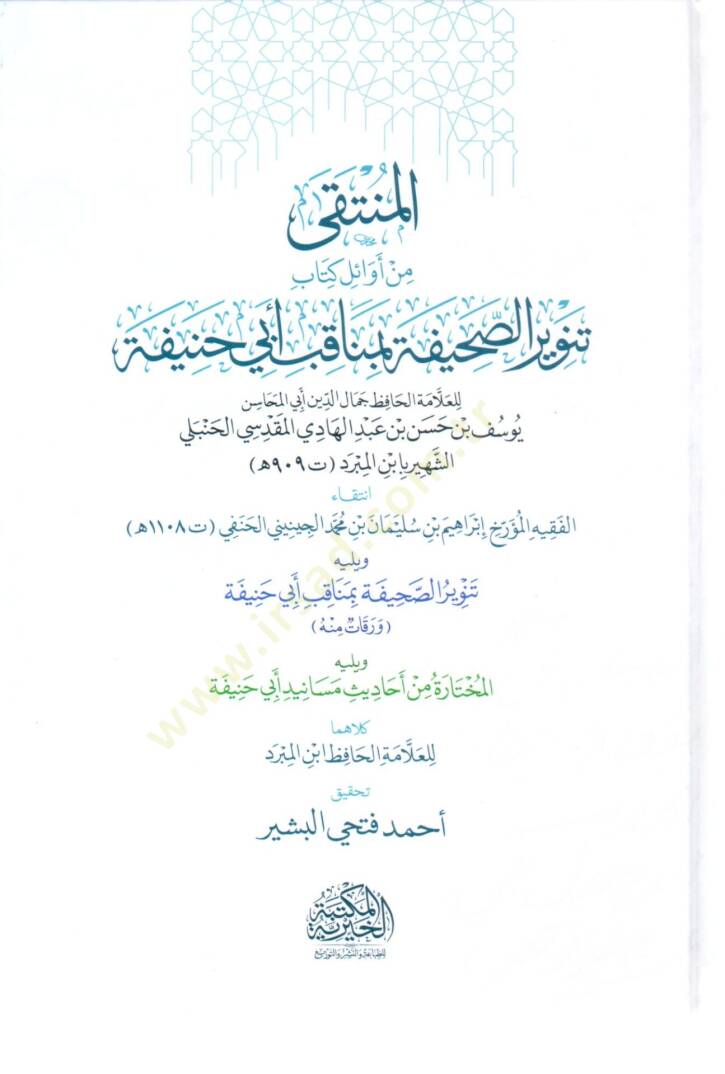 المُنْتَقَى
مِنْ أَوَائِلِ كِتَابِ
تَنْوِيرُ الصَّحِيفَة بِمَنَاقِبِ أَبِي حَنِيفَة
لِلعَلَّامَة الحَافِظ جَمَال الدِّين أَبِي المَحَاسِن
يُوسُف بْن حَسَن بْن عَبْد الهَادِي المَقْدِسِي الحَنْبَلِي
الشَّهِير بِابْنِ المِبْرَد (ت ٩٠٩هـ)
انتقاء
الفَقِيهِ المُؤَرِّخِ إِبْرَاهِيمَ بْنِ سُلَيْمَانَ بْنِ مُحَمَّد الجِينِينِي الحَنَفِي (ت ١١٠٨هـ)
ويليه
تَنْوِيرُ الصَّحِيفَة بِمَنَاقِبِ أَبِي حَنِيفَة
(وَرَقَات مِنْهُ)
ويليه
المُخْتَارَةُ مِنْ أَحَادِيثِ مَسَانِيدِ أَبِي حَنِيفَة
كلاهما
لِلعَلَّامَةِ الحَافِظ ابْنِ المِبْرَد
تحقيق
أحمد فتحي البشير
المكتبة
الخيرية
للطباعة والنشر والتوزيع
www.irsad.com.tr